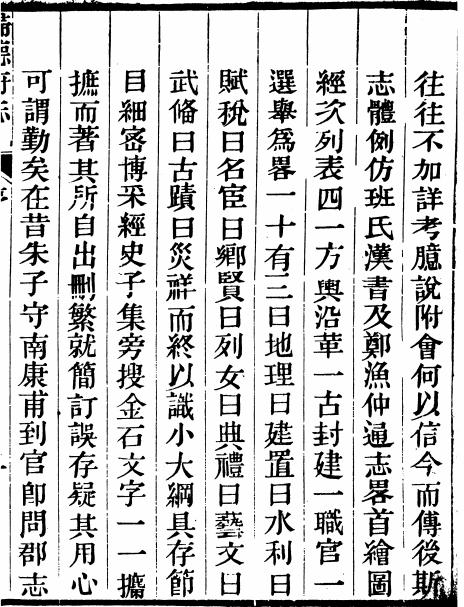 往往不加詳考臆說附會何以信今而傳後斯
志體例仿班氏漢書及鄭漁仲通志畧首繪圖
經次列表四一方輿沿革一古封建一職官一
選舉爲畧一十有三曰地理曰建置曰水利曰
賦稅曰名宦曰鄉賢曰列女曰典禮曰藝文曰
武俻曰古蹟曰災祥而終以識小大綱具存節
目細密博采經史子集旁搜金石文字一一攟
摭而著其所自出刪繁就簡訂誤存疑其用心
可謂勤矣在昔朱子守南康甫到官卽問郡志